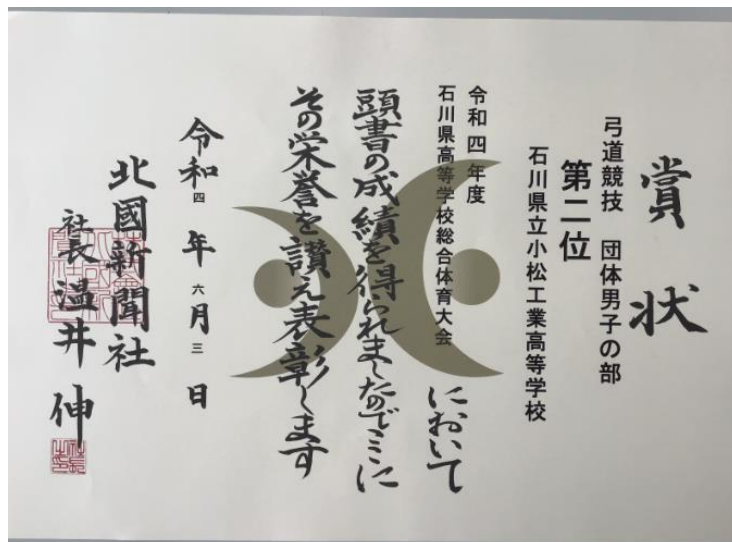 賞状
弓道競技　団体男子の部
第二位
石川県立小松工業高等学校
令和四年度
石川県高等学校総合体育大会
において
頭書の成績を得られましたのでここに
その栄誉を讃え表彰します
令和四年六月三日
北國新聞社
社長 温井伸